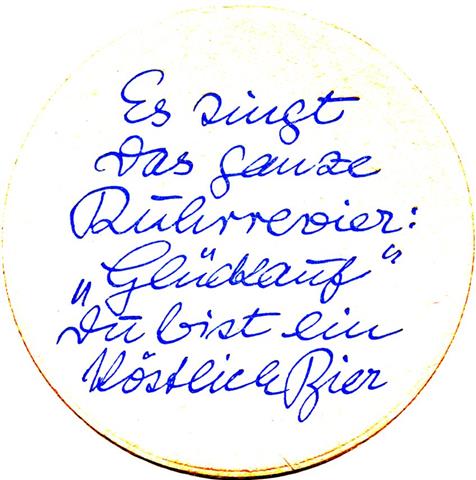 Es singt
das ganze
Ruhrrevier:
„Glückauf“
Du bist ein
köstlich Bier